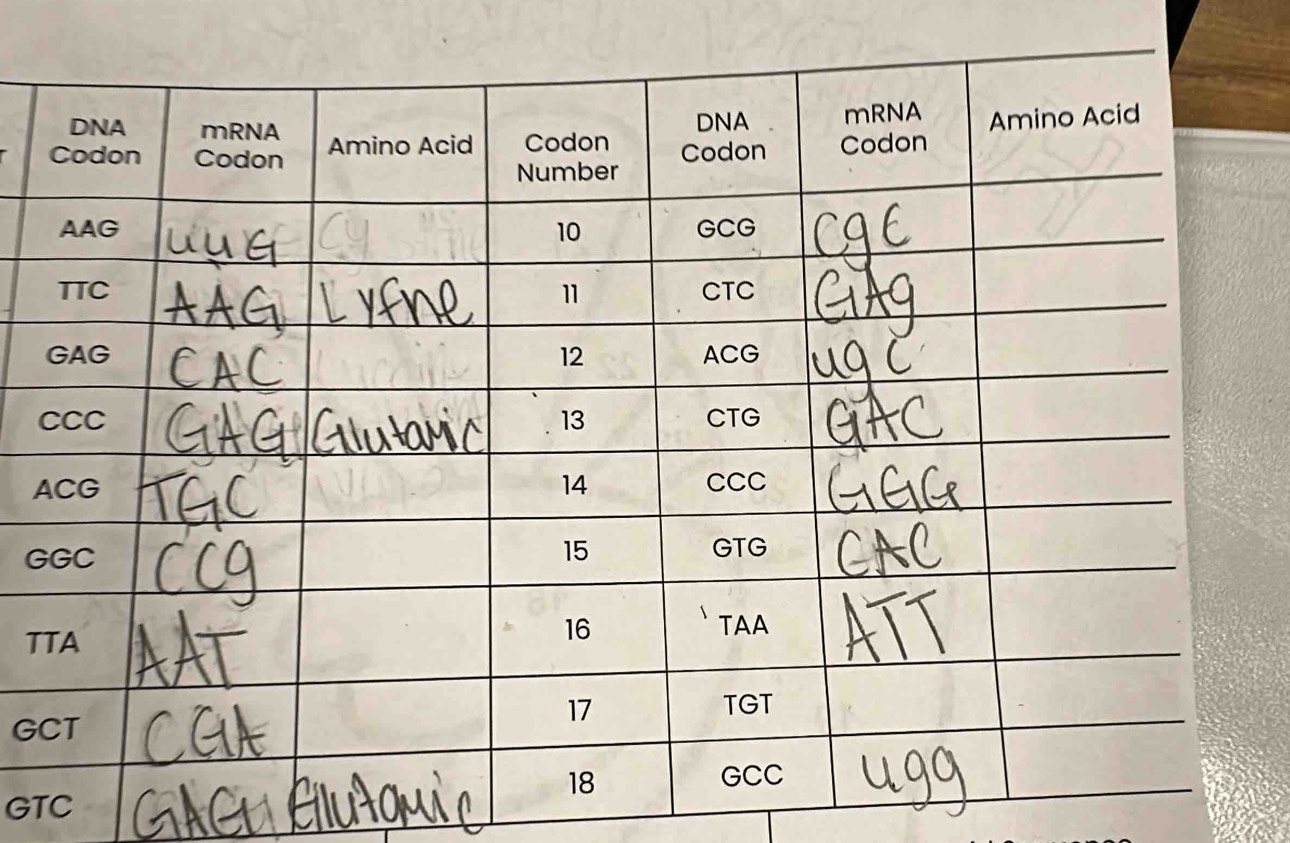 DNA Codon mRNA Codon Amino Acid Codon Number DNA Codon mRNA Codon Amino Acid
AAG UUG 10 GCG CgC
TTC AAG Lyfne 11 CTC GAg
GAG CAC 12 ACG ugC
CCC GAG Glutamic 13 CTG GAC
ACG TGC 14 CCC GGG
GGC CCg 15 GTG CAC
TTA AAT 16 TAA ATT
GCT CGA 17 TGT
GTC GAG Glutamic 18 GCC ugg